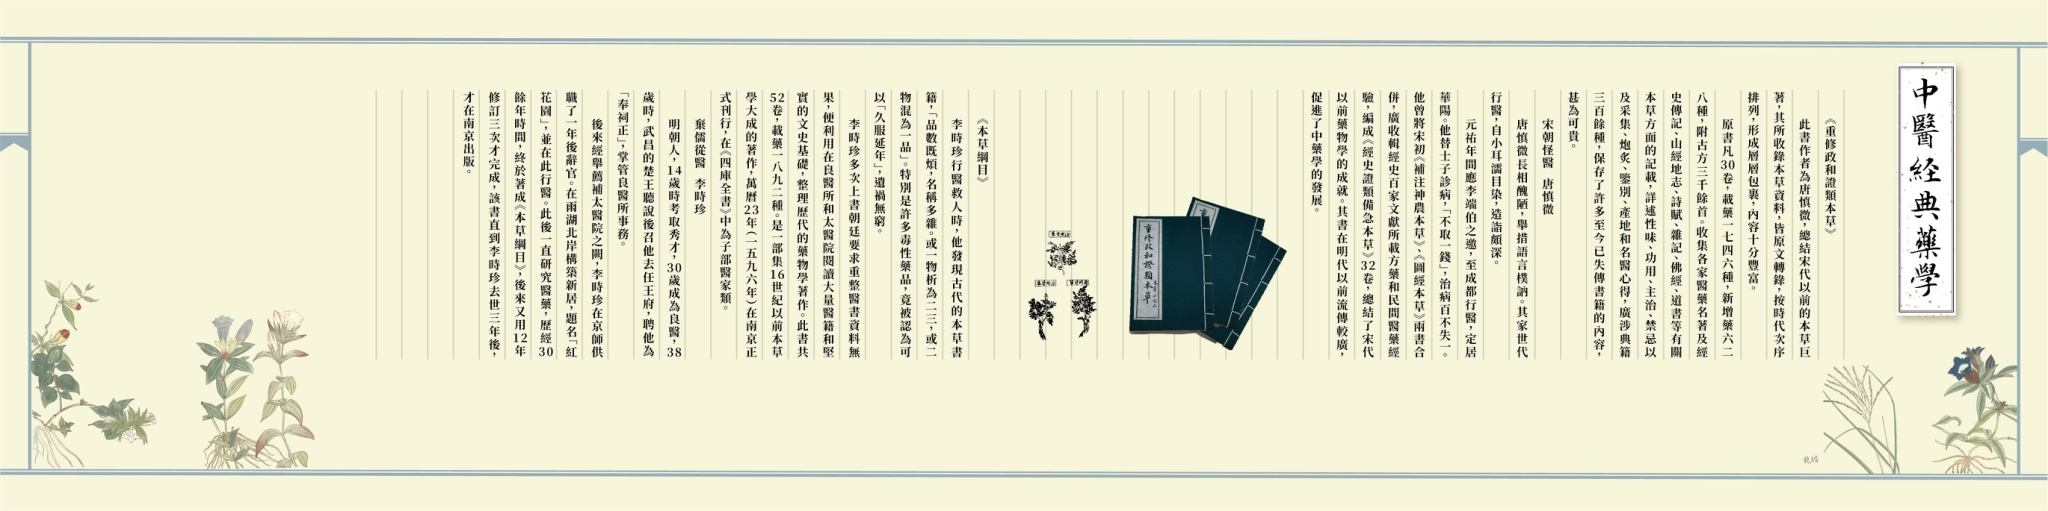 中醫經典藥學
《重修政和證類本草》
此書作者為唐慎微，總結宋代以前的本草巨
著，其所收錄本草資料，皆原文轉錄，按時代次序
排列，形成層層包裹，內容十分豐富。
原書凡30卷，載藥一七四六種，新增藥六二
八種，附古方三千餘首。收集各家醫藥名著及經
史傳記、山經地志、詩賦、雜記、佛經、道書等有關
本草方面的記載，詳述性味、功用、主治、禁忌以
及采集、炮炙、鑒別、產地和名醫心得，廣涉典籍
三百餘種，保存了許多至今已失傳書籍的內容，
甚為可貴。
宋朝怪醫 唐慎微
唐慎微長相醜陋，舉措語言樸訥。其家世代
行醫，自小耳濡目染，造詣頗深。
元祐年間應李端伯之邀，至成都行醫，定居
華陽。他替士子診病，「不取一錢」，治病百不失一。
他曾將宋初《補注神農本草》、《圖經本草》兩書合
併，廣收輯經史百家文獻所載方藥和民間醫藥經
驗，編成《經史證類備急本草》32卷，總結了宋代
以前藥物學的成就。其書在明代以前流傳較廣，
促進了中藥學的發展。
重修政和證類本草
《本草綱目》
李時珍行醫救人時，他發現古代的本草書
籍，「品數既煩，名稱多雜。或一物析為二三，或二
物混為一品」。特別是許多毒性藥品，竟被認為可
以「久服延年」，遺禍無窮。
李時珍多次上書朝廷要求重整醫書資料無
果，便利用在良醫所和太醫院閱讀大量醫籍和堅
實的文史基礎，整理歷代的藥物學著作。此書共
52卷，載藥一八九二種。是一部集16世紀以前本草
學大成的著作，萬曆23年（一五九六年）在南京正
式刊行，在《四庫全書》中為子部醫家類。
棄儒從醫 李時珍
明朝人，14歲時考取秀才，30歲成為良醫，38
歲時，武昌的楚王聽說後召他去任王府，聘他為
「奉祠正」，掌管良醫所事務。
後來經舉薦補太醫院之闕，李時珍在京師供
職了一年後辭官。在雨湖北岸構築新居，題名「紅
花園」，並在此行醫。此後一直研究醫藥，歷經30
餘年時間，終於著成《本草綱目》，後來又用12年
修訂三次才完成，該書直到李時珍去世三年後，
才在南京出版。